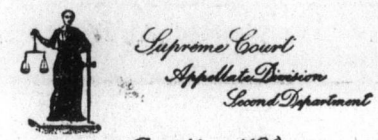 Supreme Court
Appellate Division
Second Department